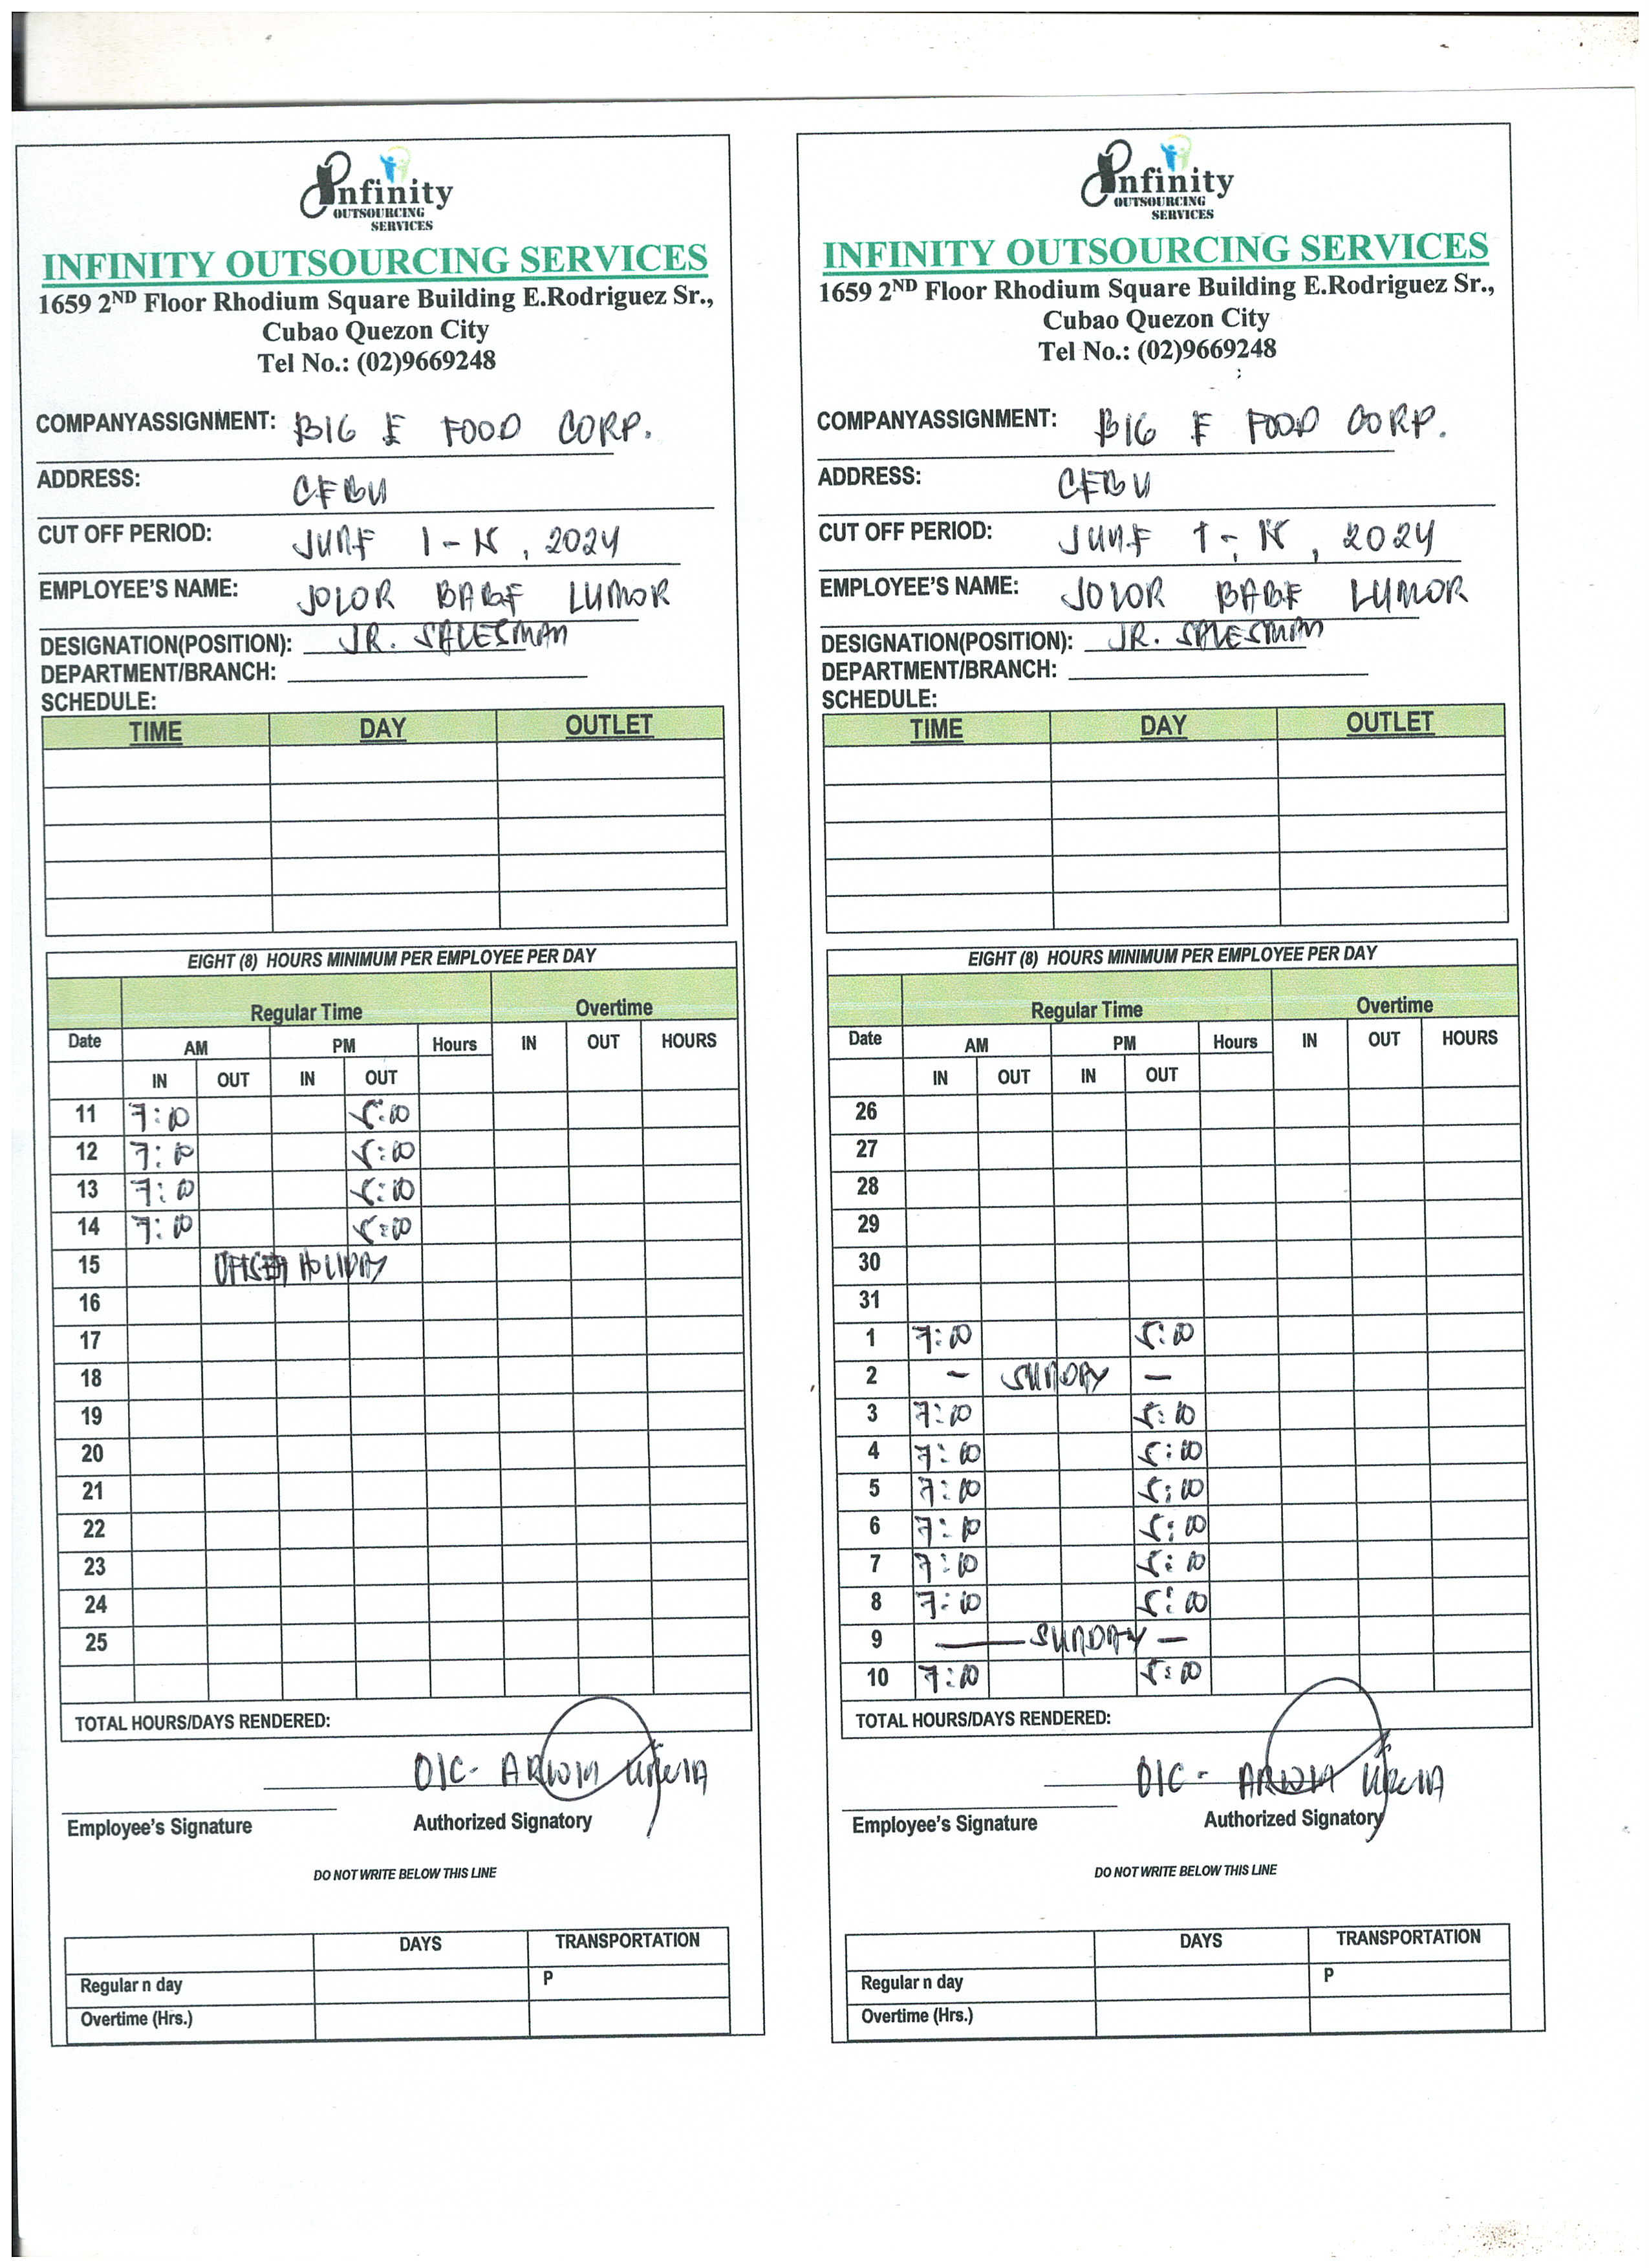 Infinity
OUTSOURCING
SERVICES
INFINITY OUTSOURCING SERVICES
1659 2ND Floor Rhodium Square Building E.Rodriguez Sr.,
Cubao Quezon City
Tel No.: (02)9669248
COMPANYASSIGNMENT: BIG E FOOD CORP.
ADDRESS: CEBU
CUT OFF PERIOD: JUNE 1 - 15, 2024
EMPLOYEE'S NAME: JOLOR BABE LUMOR
DESIGNATION(POSITION): JR. SALESMAN
DEPARTMENT/BRANCH:
SCHEDULE:
TIME DAY OUTLET
EIGHT (8) HOURS MINIMUM PER EMPLOYEE PER DAY
Regular Time Overtime
Date AM PM Hours IN OUT HOURS
IN OUT IN OUT
11 7:00 5:00
12 7:00 5:00
13 7:00 5:00
14 7:00 5:00
15 HOLIDAY
16
17
18
19
20
21
22
23
24
25
TOTAL HOURS/DAYS RENDERED:
OIC- ARWIN
Employee's Signature Authorized Signatory
DO NOT WRITE BELOW THIS LINE
DAYS TRANSPORTATION
Regular n day P
Overtime (Hrs.)
Infinity
OUTSOURCING
SERVICES
INFINITY OUTSOURCING SERVICES
1659 2ND Floor Rhodium Square Building E.Rodriguez Sr.,
Cubao Quezon City
Tel No.: (02)9669248
COMPANYASSIGNMENT: BIG E FOOD CORP.
ADDRESS: CEBU
CUT OFF PERIOD: JUNE 1 - 15, 2024
EMPLOYEE'S NAME: JOLOR BABE LUMOR
DESIGNATION(POSITION): JR. SALESMAN
DEPARTMENT/BRANCH:
SCHEDULE:
TIME DAY OUTLET
EIGHT (8) HOURS MINIMUM PER EMPLOYEE PER DAY
Regular Time Overtime
Date AM PM Hours IN OUT HOURS
IN OUT IN OUT
26
27
28
29
30
31
1 7:00 5:00
2 - SUNDAY -
3 7:00 5:00
4 7:00 5:00
5 7:00 5:00
6 7:00 5:00
7 7:00 5:00
8 7:00 5:00
9 - SUNDAY -
10 7:00 5:00
TOTAL HOURS/DAYS RENDERED:
OIC - ARWIN
Employee's Signature Authorized Signatory
DO NOT WRITE BELOW THIS LINE
DAYS TRANSPORTATION
Regular n day P
Overtime (Hrs.)